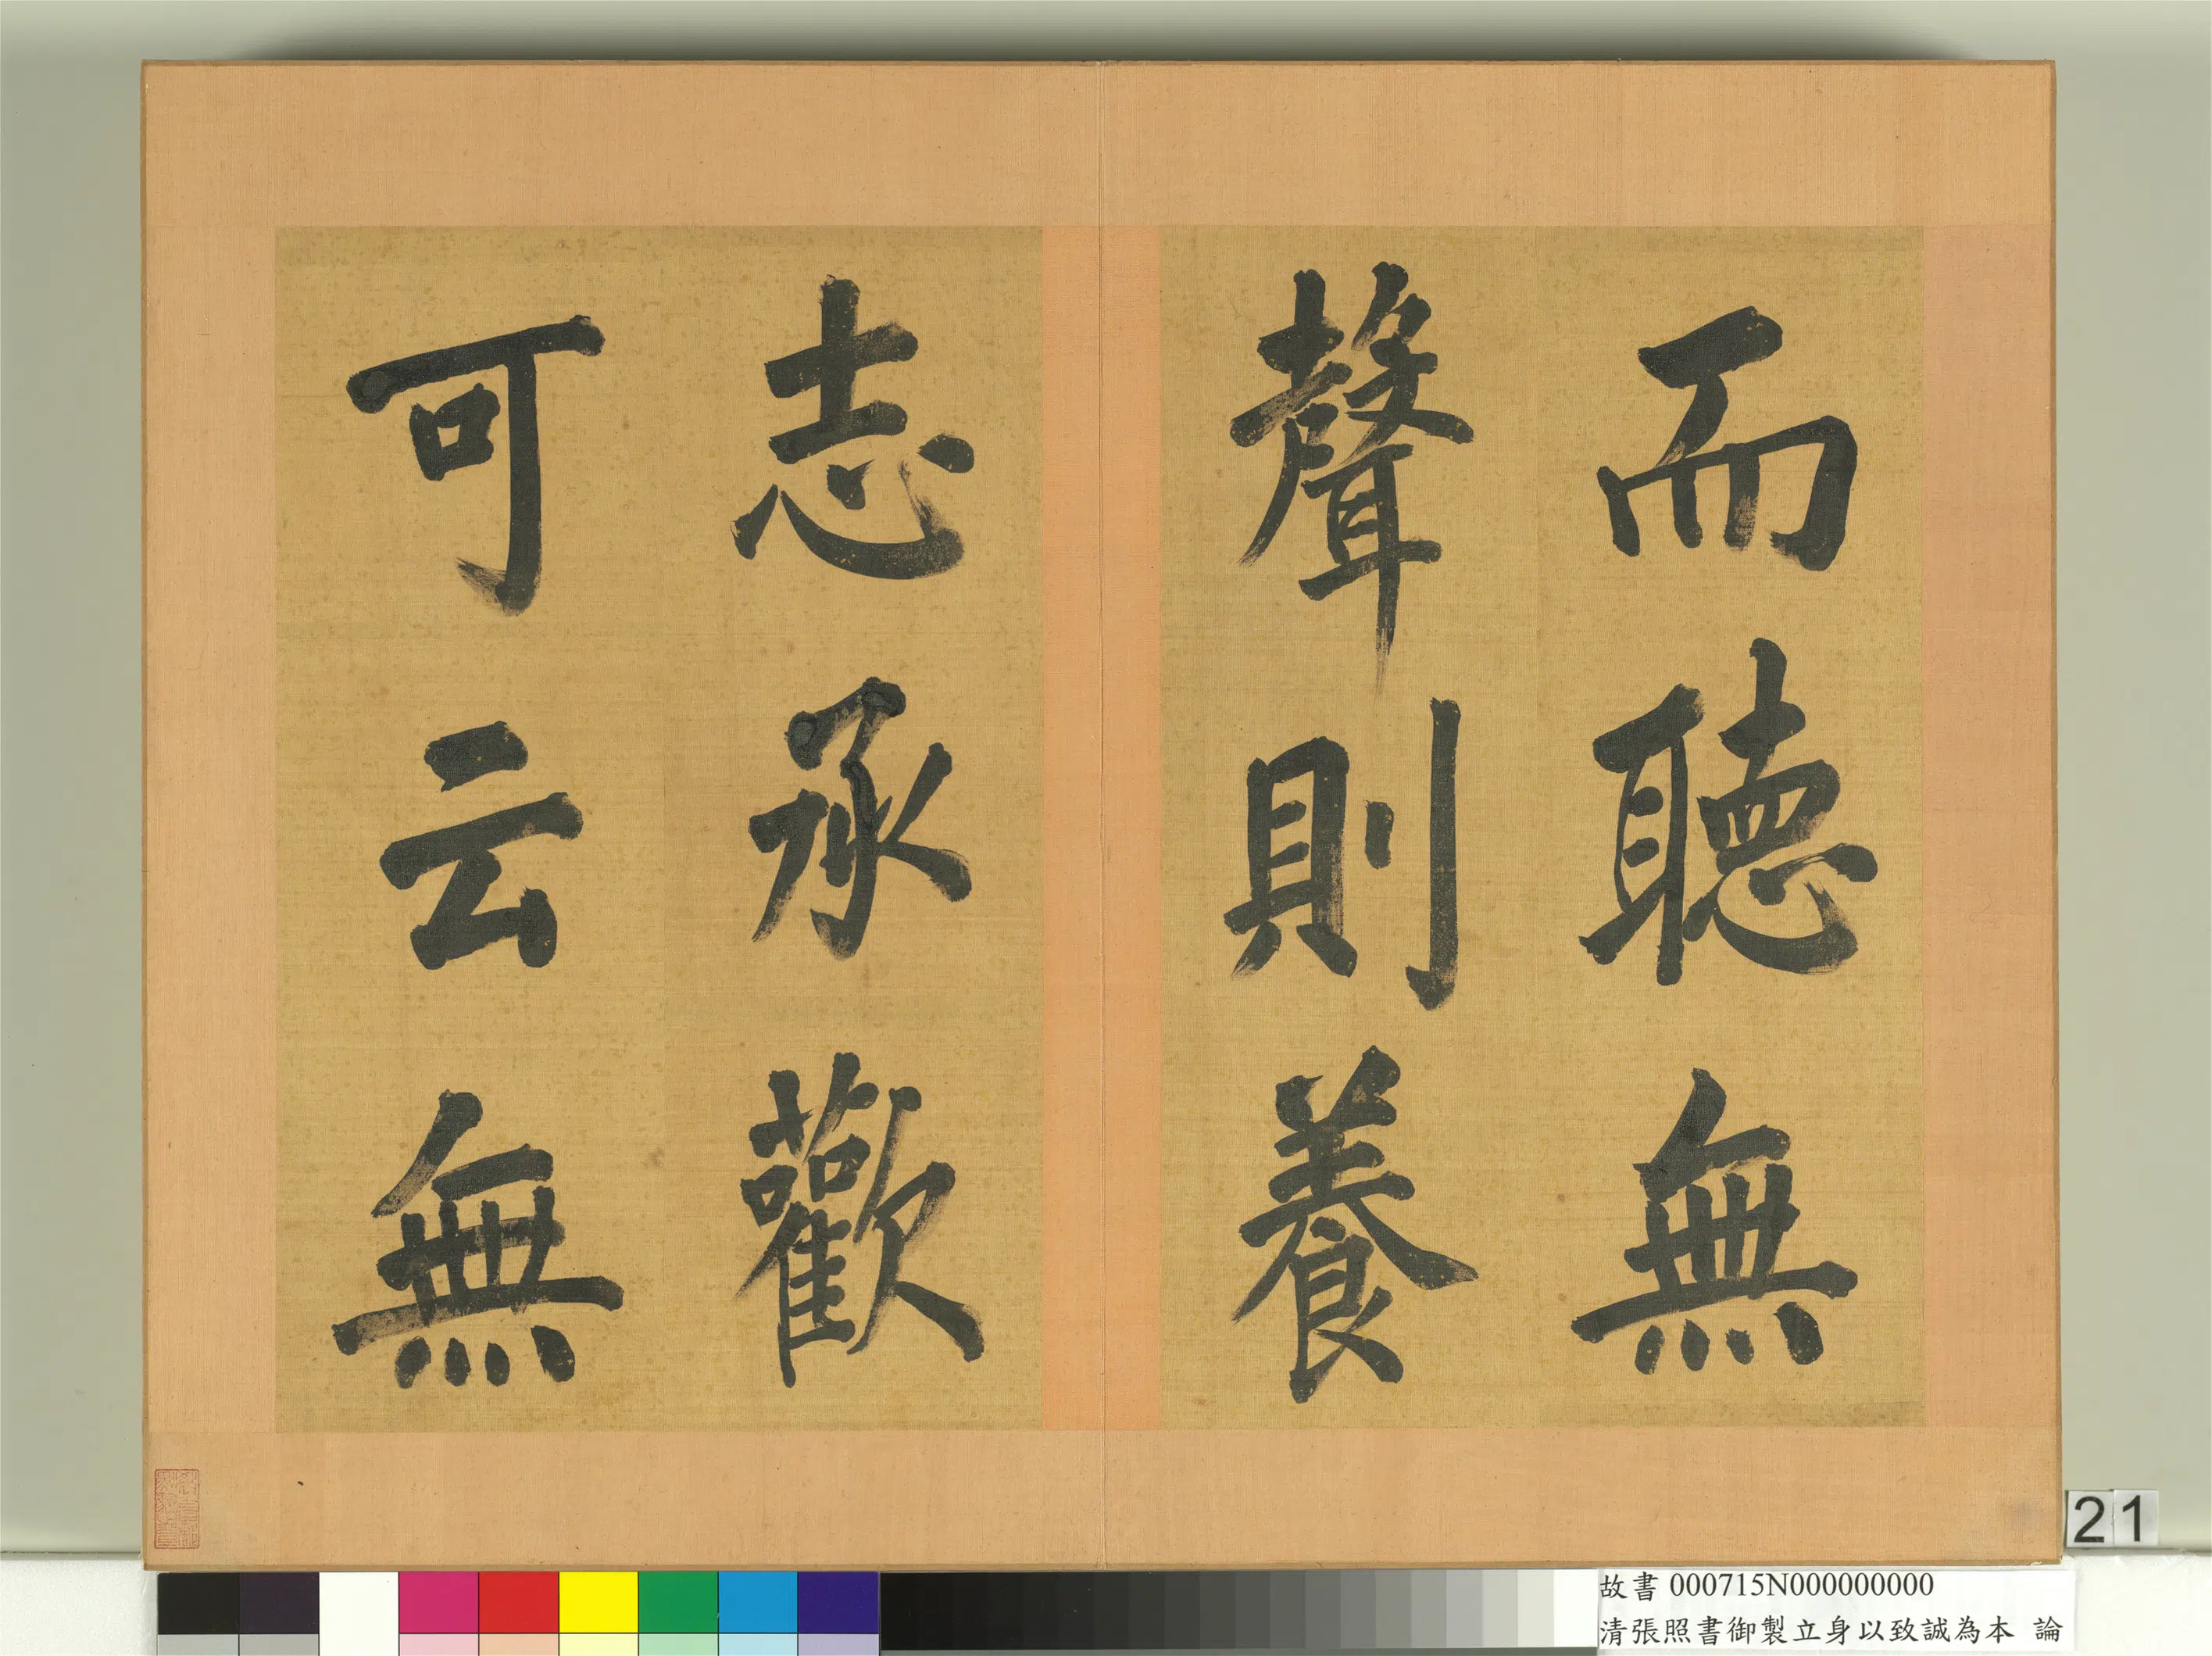 而聽無
聲則養
志承歡
可云無
21
故書 000715N000000000
清張照書御製立身以致誠為本 論